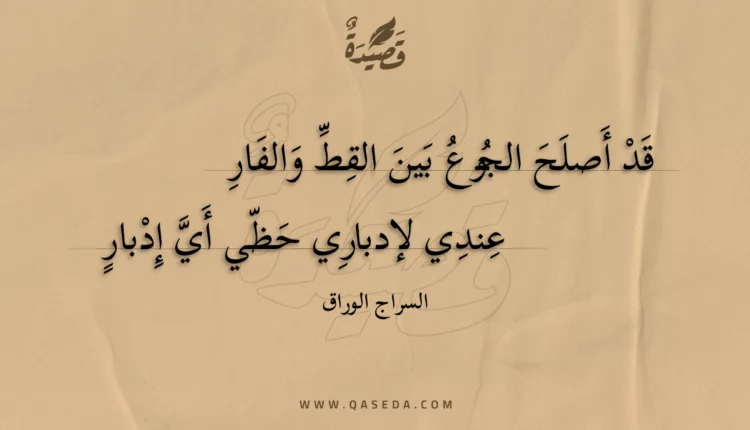 قَصِيدَةٌ
قَدْ أَصلَحَ الجُوعُ بَينَ القِطِّ وَالفَارِ
عِندِي لإدبارِي حَظّي أَيَّ إِدْبارٍ
السراج الوراق
WWW.QASEDA.COM